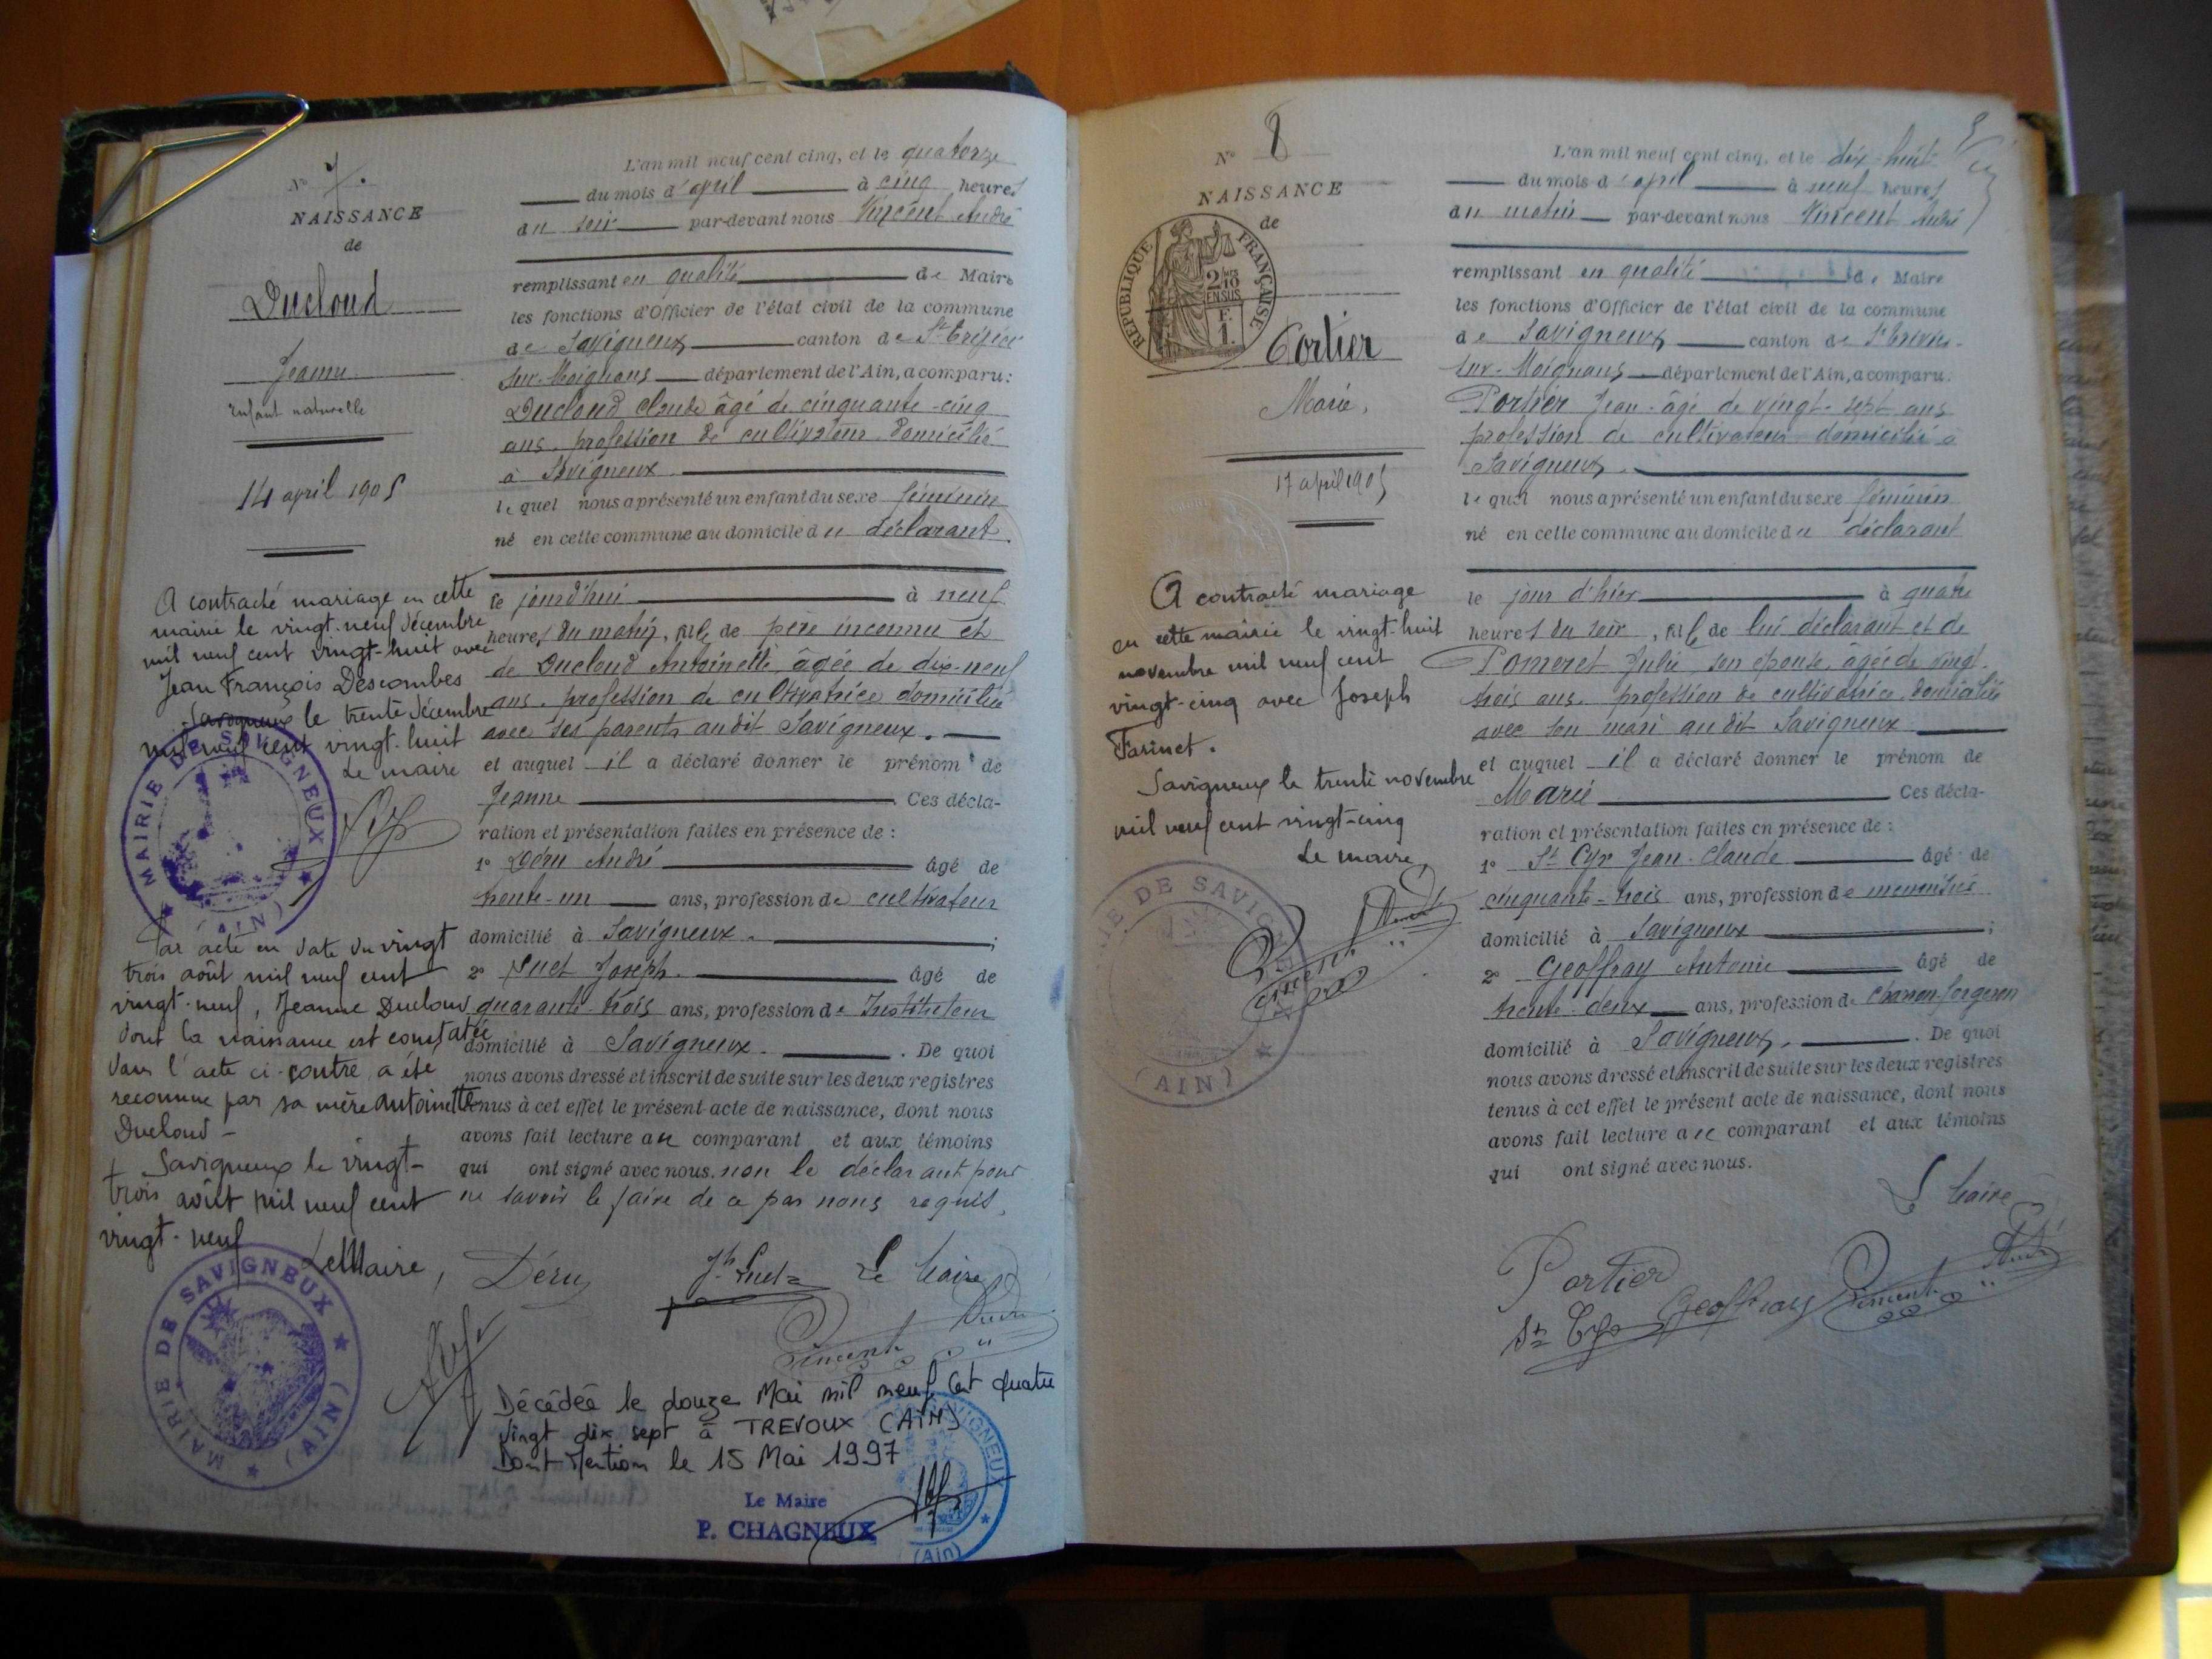 N° 7.
NAISSANCE
de
Ducloud
Jeanne
Enfant naturelle
14 april 1905
L'an mil neuf cent cinq, et le quatorze
du mois d'april à cinq heures
du soir par-devant nous Vincent André
remplissant en qualité de Maire
les fonctions d'Officier de l'état civil de la commune
de Savigneux canton de St Trivier
sur-Moignans département de l'Ain, a comparu:
Ducloud Claude âgé de cinquante-cinq
ans, profession de cultivateur domicilié
à Savigneux
lequel nous a présenté un enfant du sexe féminin
né en cette commune au domicile du déclarant
le jourd'hui à neuf
heures du matin, fille de père inconnu et
de Ducloud Antoinette âgée de dix-neuf
ans, profession de cultivatrice domiciliée
avec ses parents audit Savigneux.
et auquel il a déclaré donner le prénom de
Jeanne Ces décla-
ration et présentation faites en présence de :
1° Déru André âgé de
trente-un ans, profession de cultivateur
domicilié à Savigneux ;
2° Suet Joseph. âgé de
quarante-trois ans, profession de Instituteur
domicilié à Savigneux. . De quoi
nous avons dressé et inscrit de suite sur les deux registres
tenus à cet effet le présent acte de naissance, dont nous
avons fait lecture au comparant et aux témoins
qui ont signé avec nous, non le déclarant pour
ne savoir le faire de ce par nous requis.
Déru Jh Suet Le Maire
Vincent André
A contracté mariage en cette
mairie le vingt-neuf décembre
mil neuf cent vingt-huit avec
Jean François Descombes
Savigneux le trente décembre
mil neuf cent vingt-huit
Le maire
MAIRIE DE SAVIGNEUX
(AIN)
Par acte en date du vingt
trois août mil neuf cent
vingt-neuf, Jeanne Ducloud
dont la naissance est constatée
dans l'acte ci-contre, a été
reconnue par sa mère Antoinette
Ducloud -
Savigneux le vingt-
trois août mil neuf cent
vingt-neuf
Le Maire,
MAIRIE DE SAVIGNEUX
(AIN)
Décédée le douze Mai mil neuf Cent quatre
vingt dix sept à TREVOUX (AIN)
Dont Mention le 15 Mai 1997
Le Maire
P. CHAGNEUX
SAVIGNEUX
(Ain)
N° 8
NAISSANCE
de
REPUBLIQUE FRANÇAISE
2/10
EN SUS
F.
1.
Portier
Marie,
17 april 1905
L'an mil neuf cent cinq, et le dix-huit
du mois d'april à neuf heures
du matin par-devant nous Vincent André
remplissant en qualité de Maire
les fonctions d'Officier de l'état civil de la commune
de Savigneux canton de St Trivier-
sur-Moignans département de l'Ain, a comparu:
Portier Jean âgé de vingt-sept ans
profession de cultivateur domicilié à
Savigneux.
lequel nous a présenté un enfant du sexe féminin
né en cette commune au domicile du déclarant
le jour d'hier à quatre
heures du soir, fille de lui déclarant et de
Pomeret Julie son épouse, âgée de vingt-
trois ans, profession de cultivatrice domiciliée
avec son mari audit Savigneux
et auquel il a déclaré donner le prénom de
Marie Ces décla-
ration et présentation faites en présence de :
1° St Cyr Jean-Claude âgé de
cinquante-trois ans, profession de menuisier
domicilié à Savigneux ;
2° Geoffray Antonin âgé de
trente-deux ans, profession de Charron-forgeron
domicilié à Savigneux. . De quoi
nous avons dressé et inscrit de suite sur les deux registres
tenus à cet effet le présent acte de naissance, dont nous
avons fait lecture au comparant et aux témoins
qui ont signé avec nous.
Le Maire
Portier
St Cyr Geoffray Vincent André
A contracté mariage
en cette mairie le vingt-huit
novembre mil neuf cent
vingt-cinq avec Joseph
Farinet.
Savigneux le trente novembre
mil neuf cent vingt-cinq
Le maire,
Vincent André
MAIRIE DE SAVIGNEUX
(AIN)